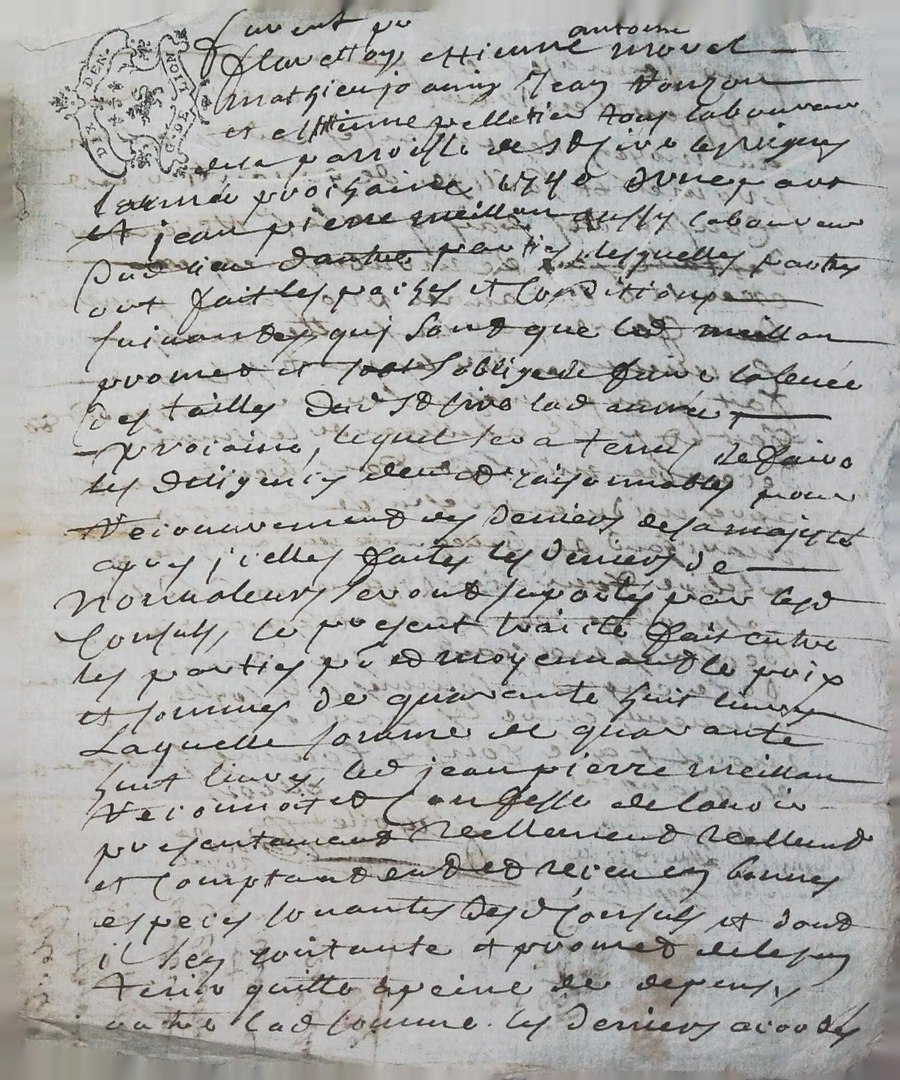 furent pr
antoine
DIX DEN NOTT ROE
etienne morel
mathieu Jean
et ettienne pelletier tous laboureur
de la parroisse de St Sivo les vignes
lannée prochaine 1740 dune part
et jean pierre meillan aussy laboureur
dud lieu dautre parties, lesquelles parties
ont fait les paches et Conditions
suivandes quj sond que led meillan
promed et soblige de faire la levée
des tailles dud St Sivo lad année
proiaine, lequel sera tenus de faire
les diligences raisonnables pour
Recouvrement des deniers de sa majesté
apres jcelles faites les deniers de
Nonvaleurs seront suportés par lesd
Consuls, le present traité fait entre
les parties moyennand le prix
et sommes de quarante huit livres
Laquelle somme de quarante
huit livres, led jean pierre meillan
Reconnoit ed Confesse de lavoir
presentemend reellemend
et Comptand ed recu en bonnes
especes sonantes desd Consuls et dond
il sen contante et promed de les en
tenir quitte a peine de depens,
outre lad somme. les deniers